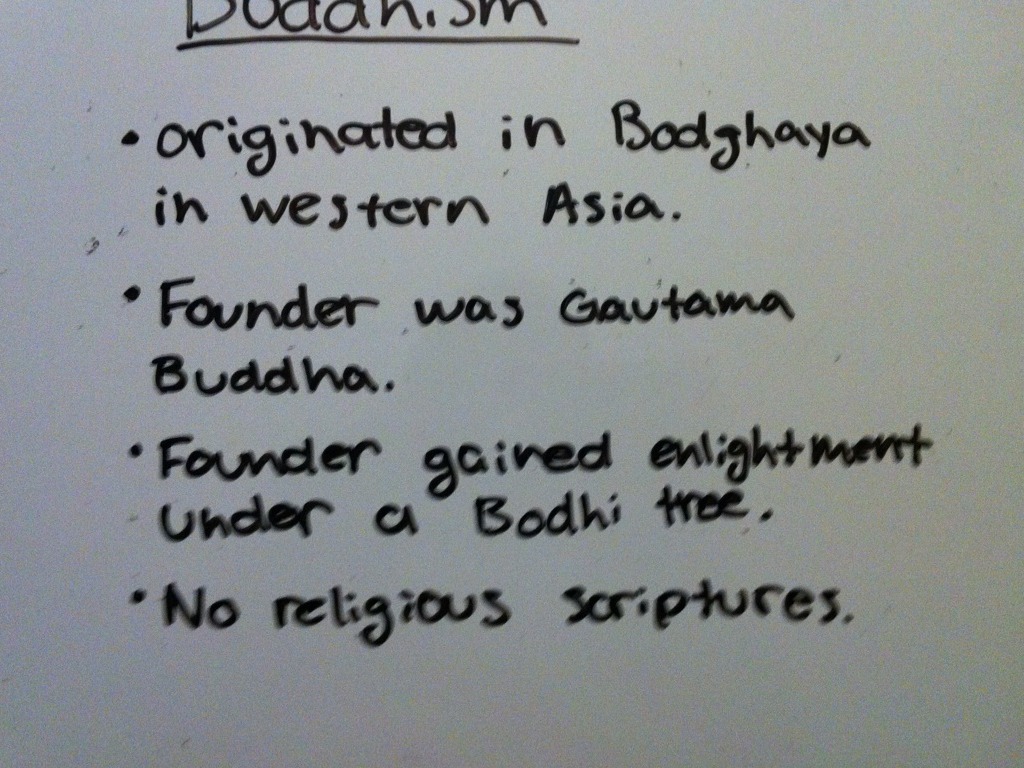 Buddhism
• originated in Bodghaya
in western Asia.
• Founder was Gautama
Buddha.
• Founder gained enlightment
under a Bodhi tree.
• No religious scriptures.